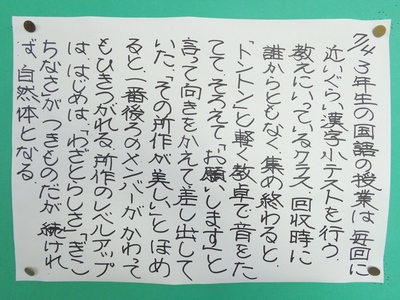 7/4 3年生の国語の授業は、毎回に
近いぐらい、漢字小テストを行う。
教えにいっているクラス、回収時に
誰からともなく集め終わると、
「トントン」と軽く教卓で音をた
てて、そろえて「お願いします」と
言って向きをかえて差し出して
いた。「その所作が美しい」とほめ
ると、一番後ろのメンバーがかわって
もひきつがれる。所作のレベルアップ
は、はじめは、「わざとらしさ」「ぎこ
ちなさ」がつきものだが、続けれ
ば、自然体となる。